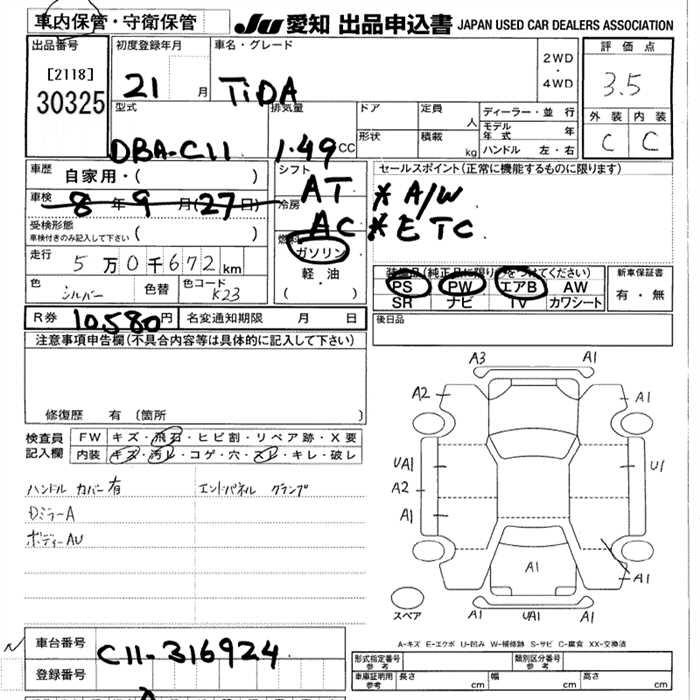 車内保管・守衛保管
JU 愛知 出品申込書 JAPAN USED CAR DEALERS ASSOCIATION
出品番号
[2118]
30325
初度登録年月
21 月
車名・グレード
TiDA
2WD
・
4WD
評価点
3.5
外装 内装
C C
型式
DBA-C11
排気量
1.49 CC
ドア
形状
定員 人
積載 kg
ディーラー・並行
モデル年式 年
ハンドル 左・右
車歴 自家用・( )
車検 8年9月(27日)
受検形態
車検付きのみ記入して下さい ( )
走行 5万0千672km
色 シルバー 色替 色コード K23
シフト
AT
冷房
AC
燃料
ガソリン
軽・油
( )
セールスポイント(正常に機能するものに限ります)
* A/W
* ETC
装備品(純正品に限り○をつけてください)
PS PW エアB AW
SR ナビ TV カワシート
新車保証書
有・無
後日品
R券 10,580円 名変通知期限 月 日
注意事項申告欄(不具合内容等は具体的に記入して下さい)
修復歴 有 (箇所 )
検査員
記入欄
FW キズ・飛石・ヒビ割・リペア跡・X要
内装 キズ・汚レ・コゲ・穴・スレ・キレ・破レ
ハンドル カバー有 エンドパネル クランプ
Dミラー A
ボディー AU
A3 A1
A2 A1
UA1 U1
A2
A1
A1
A1
A1 UA1 A1
スペア
A-キズ E-エクボ U-凹み W-補修跡 S-サビ C-腐食 XX-交換済
車台番号 C11-316924
登録番号
型式指定番号
参考
類別区分番号
参考
車庫証明用
参考
長さ cm 幅 cm 高さ cm